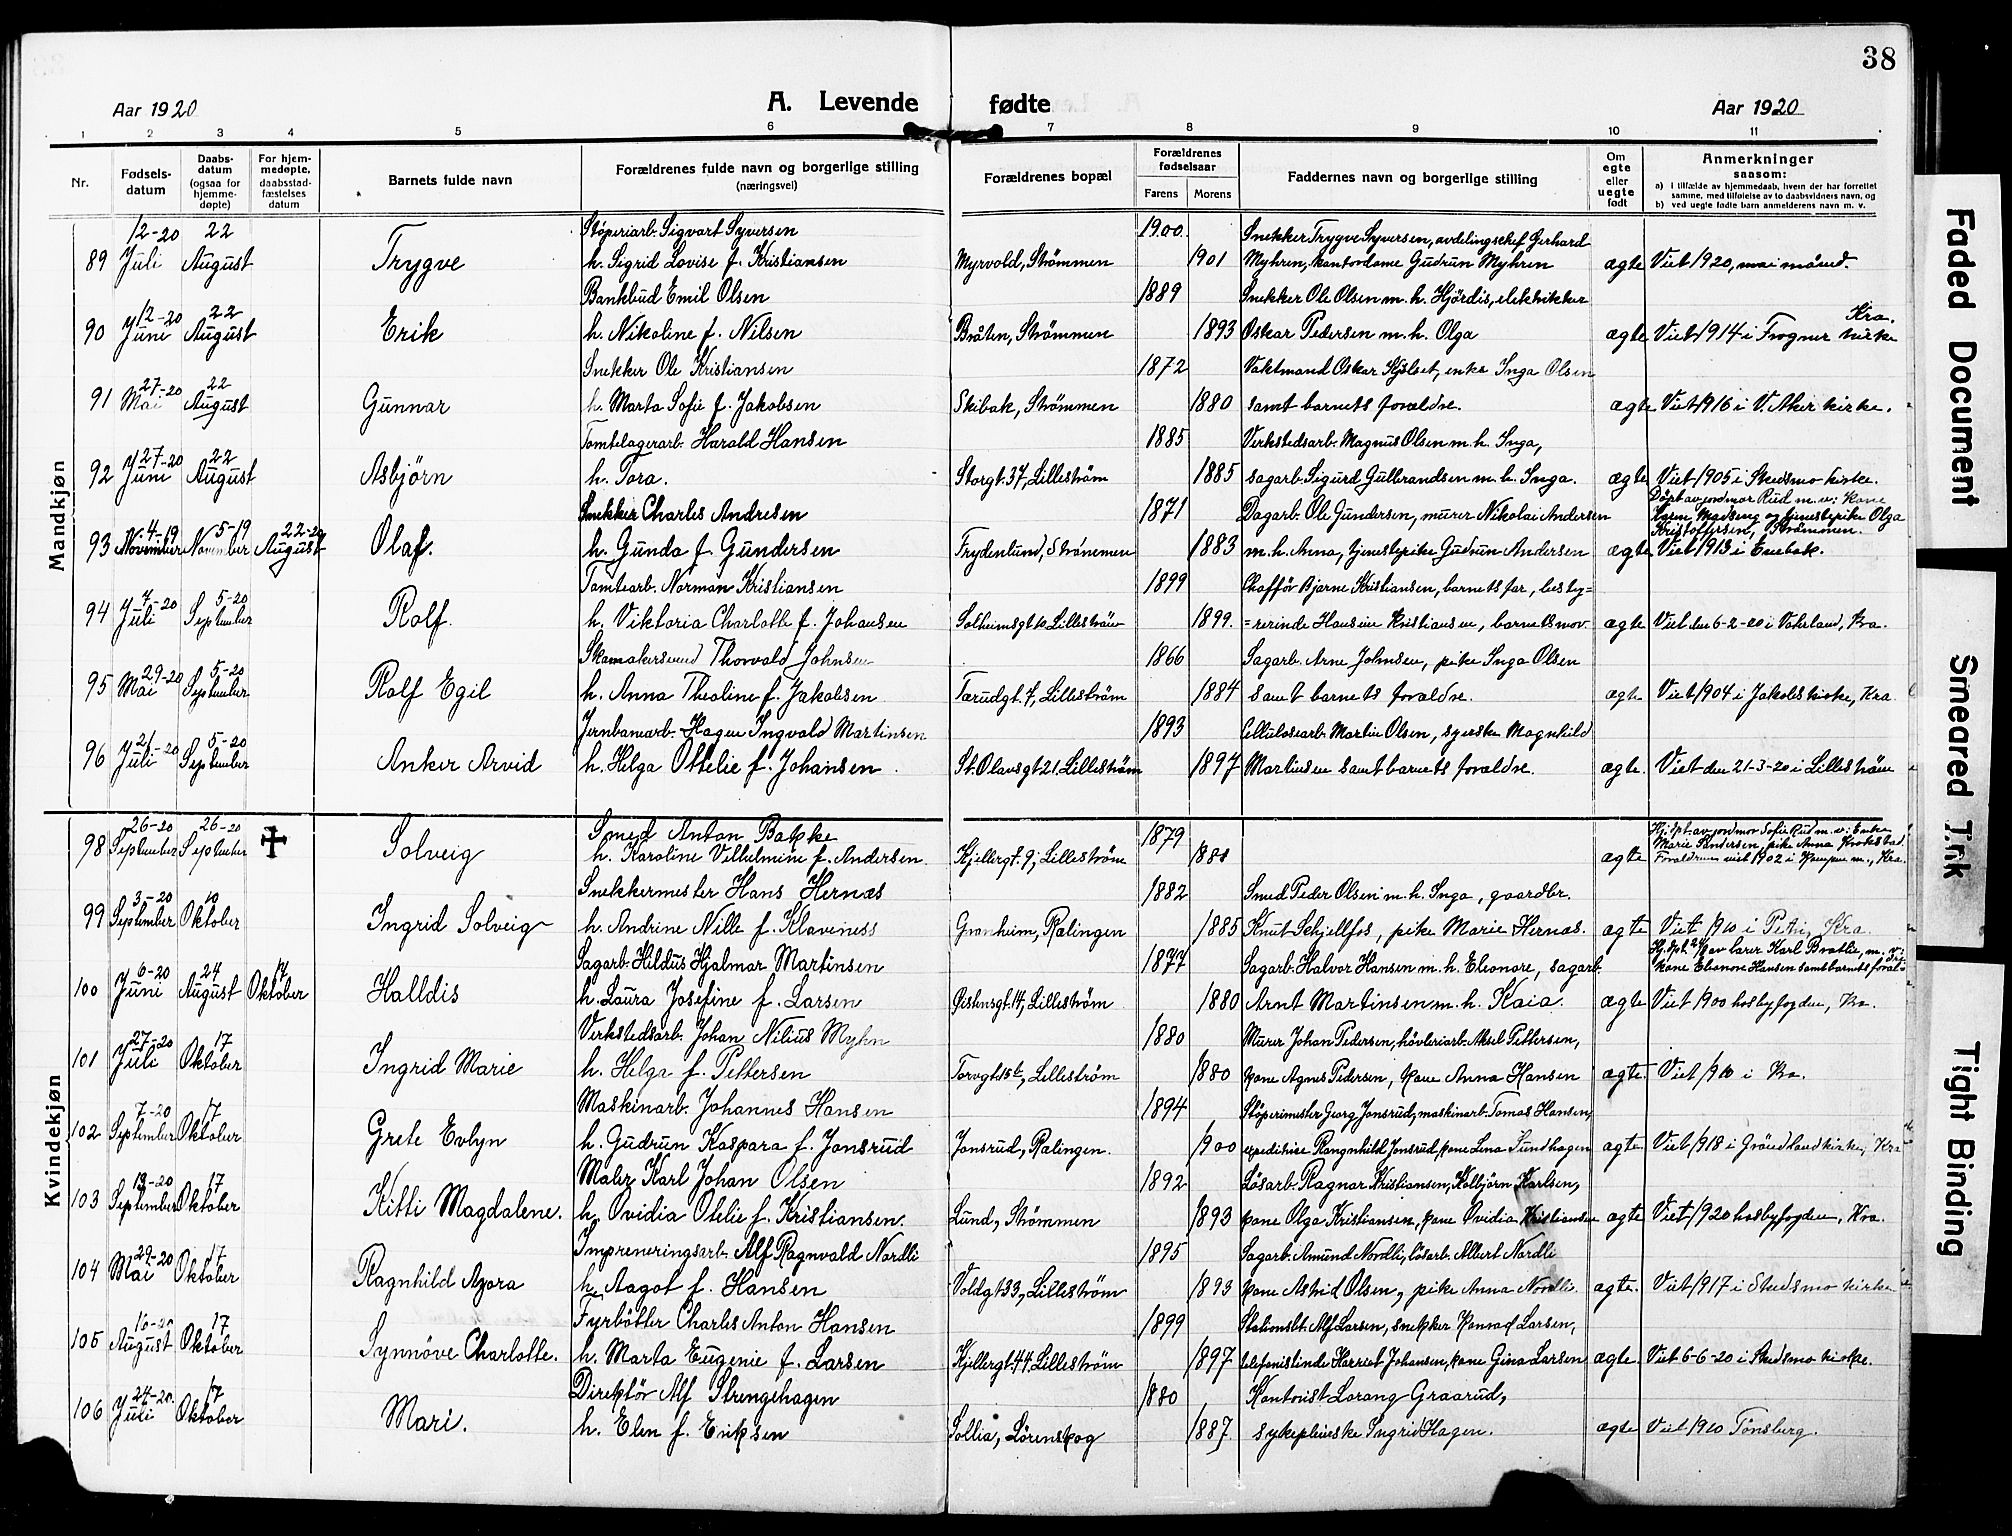 38
Aar 1920 A. Levende fødte Aar 1920
1 2 3 4 5 6 7 8 9 10 11
Nr. Fødselsdatum Daabsdatum (ogsaa for hjemmedøpte) For hjemmedøpte, daabsstadfæstelses datum Barnets fulde navn Forældrenes fulde navn og borgerlige stilling (næringsvei) Forældrenes bopæl Forældrenes fødselsaar Farens Morens Faddernes navn og borgerlige stilling Om egte eller uegte født Anmerkninger saasom:
a) i tilfælde av hjemmedaab, hvem der har forrettet samme, med tilføielse av to daabsvidners navn, og
b) ved uegte fødte barn anmelderens navn m. v.
Mandkjøn
12-20 22 Støperiarb. Sigvart Syversen 1900. Snekker Trygve Syversen, avdelingschef Gerhard
89 Juli August Trygve h. Sigrid Lovise f. Kristiansen Myrvold, Strømmen 1901 Myhren, kontordame Gudrun Myhren ægte Viet 1920, mai måned.
12-20 22 Bankbud Emil Olsen 1889 Snekker Ole Olsen m. h. Hjördis, elektrikker Kra.
90 Juni August Erik h. Nikoline f. Nilsen Bråten, Strømmen 1893 Oskar Pedersen m. h. Olga ægte Viet 1914 i Frogner kirke
27-20 22 Snekker Ole Kristiansen 1872 Vaktmand Oskar Kjölset, enke Inga Olsen
91 Mai August Gunnar h. Marta Sofie f. Jakobsen Skibak, Strømmen 1880 samt barnets forældre. ægte Viet 1916 i V. Aker kirke.
27-20 22 Tomtelagerarb. Harald Hansen 1885 Verkstedsarb. Magnus Olsen m. h. Inga,
92 Juni August Asbjörn h. Tora. Storgt. 37, Lilleström 1885 sagarb. Sigurd Gulbrandsen m. h. Inga. ægte Viet 1905 i Skedsmo kirke.
4-19 5-19 22-20 Snekker Charles Andresen 1871 Dagarb. Ole Gundersen, murer Nikolai Andersen Döpt av jordmor Rud m. v: kone Karen Madseng og tjenestepike Olga Kristoffersen, Strømmen.
93 November November August Olaf. h. Gunda f. Gundersen Frydenlund, Strömmen 1883 m. h. Anna, tjenestepike Gudrun Andersen ægte Viet 1913 i Enebak.
7-20 5-20 Tomtearb. Norman Kristiansen 1899 Chafför Bjarne Kristiansen, barnets far, besty=
94 Juli September Rolf. h. Viktoria Charlotte f. Johansen Solheimsgt 10 Lilleström 1899. =rerinde Hansine Kristiansen, barnets mor. ægte Viet den 6-2-20 i Vaterland, Kra.
29-20 5-20 Skomakersvend Thorvald Johnsen 1866 Sagarb. Arne Johnsen, pike Inga Olsen
95 Mai September Rolf Egil h. Anna Theoline f. Jakobsen Tærudgt. 7, Lilleström 1884 samt barnets forældre. ægte Viet 1904 i Jakobs kirke, Kra.
21-20 5-20 Jernbanearb. Hagen Ingvald Martinsen 1893 Cellulosearb. Martin Olsen, syerske Magnhild
96 Juli September Anker Arvid h. Helga Ottelie f. Johansen St. Olavsgt 21 Lilleström 1897 Martinsen samt barnets forældre. ægte. Viet den 21-3-20 i Lilleström
Kvindekjøn
26-20 26-20 Smed Anton Bakke 1879 Hj. döpt. av jordmor Sofie Rud m. v: Enke
98 September September Solveig h. Karoline Vilhelmine f. Andersen. Kjellergt. 9, Lilleström 1881 ægte Marie Pandersen, pike Anna Krokstad. Forældrene viet 1902 i Kampen m., Kra.
3-20 10 Snekkermester Hans Hernæs 1882 Smed Peder Olsen m. h. Inga, gaardbr.
99 September Oktober Ingrid Solveig h. Andrine Nille f. Klaveness Granheim, Rælingen 1885 Knut Schjellfos, pike Marie Hernæs. ægte Viet 1910 i Petri, Kra.
6-20 24 17 Sagarb. Hildus Hjalmar Martinsen 1877 Sagarb. Halvor Hansen m. h. Eleonore, sagarb. kone Eleonore Hansen samt barnets foræld
100 Juni August Oktober Halldis h. Laura Josefine f. Larsen gt. 14, Lilleström 1880 Arnt Martinsen m. h. Kaia. ægte Viet 1900 hos byfogden, Kra.
27-20 17 Verkstedsarb. Johan Nilius Myhn 1880 Murer Johan Pedersen, hövleriarb. Aksel Pettersen,
101 Juli Oktober Ingrid Marie h. Helga f. Pettersen Torvgt. 15b, Lilleström 1880 kone Agnes Pedersen, kone Anna Hansen ægte. Viet 1910 i Kra.
7-20 17 Maskinarb. Johannes Hansen 1894 Støperimester Georg Jonsrud, maskinarb. Tomas Hansen,
102 September Oktober Grete Evlyn h. Gudrun Kaspara f. Jonsrud Jonsrud, Rælingen. 1900 expeditrise Rangnhild Jonsrud, kone Lina Sundhagen ægte. Viet 1918 i Grönland kirke, Kra
13-20 17 Maler Karl Johan Olsen 1892 Lösarb. Ragnar Kristiansen, Kolbjörn Karlsen,
103 September Oktober Kitti Magdalene. h. Ovidia Otelie f. Kristiansen. Lund, Strömmen 1893 kone Olga Kristiansen, kone Ovidia Kristiansen ægte Viet 1920 hos byfogden, Kra.
29-20 17 Impreneringsarb. Alf Ragnvald Nordli 1895 Sagarb. Amund Nordli, lösarb. Albert Nordli
104 Mai Oktober Ragnhild Azora h. Aagot f. Hansen Voldgt 33, Lilleström 1893 kone Astrid Olsen, pike Anna Nordli. ægte. Viet 1917 i Skedsmo kirke
10-20 17 Fyrbötter Charles Anton Hansen 1899 Stationsbt. Alf Larsen, snekker Konrad Larsen,
105 August Oktober Synnöve Charlotte. h. Marta Eugenie f. Larsen Kjellergt. 44. Lilleström 1897 telefonistinde Harriet Johansen, kone Gina Larsen ægte. Viet 6-6-20 i Skedsmo kirke.
24-20. 17 Direktör Alf Strengehagen 1880 Kontorist Lorang Graarud,
106 Juli Oktober Mari. h. Elen f. Eriksen Sollia, Lörenskog 1887 sykepleierske Ingrid Hagen. ægte Viet 1910 Tönsberg.
Faded Document
Smeared Ink
Tight Binding